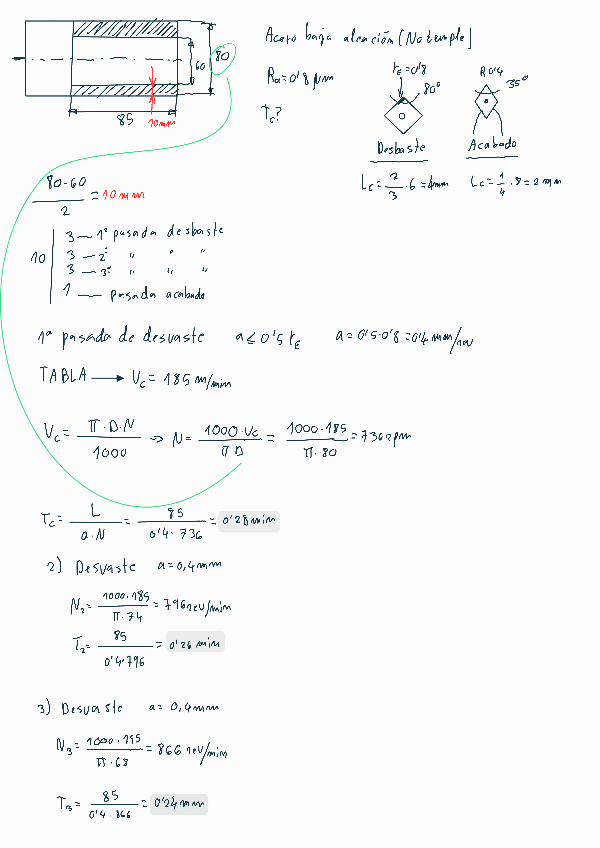 Acero baja aleación (No temple)
80
60
Ra = 0'8 μm
rE = 0'8
80º
R 0'4
35º
Tc?
85
10mm
Desbaste
Acabado
Lc = 2/3 · 6 = 4mm
Lc = 1/4 · 8 = 2 mm
80-60/2 = 10 mm
10
3 — 1ª pasada desbaste
3 — 2ª " " "
3 — 3ª " " "
1 — pasada acabado
1ª pasada de desvaste a ≤ 0'5 rE a = 0'5·0'8 = 0'4 mm/rev
TABLA → Vc = 185 m/min
Vc = π·D·N/1000 => N = 1000·Vc/πD = 1000·185/π·80 = 736 rpm
Tc = L/a·N = 85/0'4·736 = 0'28 min
2) Desvaste a = 0,4mm
N2 = 1000·185/π·74 = 796 rev/min
T2 = 85/0'4·796 = 0'26 min
3) Desvaste a = 0,4mm
N3 = 1000·195/π·68 = 866 rev/min
T3 = 85/0'4·866 = 0'24 mm